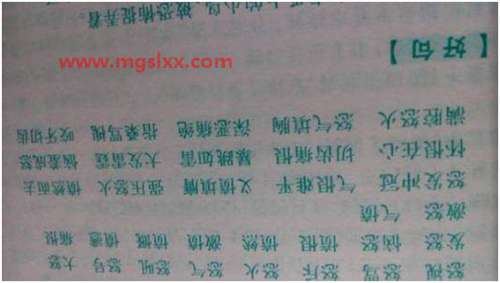 怒视 怒骂 怒斥 怒火 气怒 怒吼 怒号 大怒
发怒 恼怒 愤恨 愤然 激愤 愤慨 愤懑 痛恨
激怒 气愤
怒发冲冠 气恨难平 义愤填膺 强压怒火 愤然而去
怀恨在心 切齿痛恨 暴跳如雷 大发雷霆 恼羞成怒
满腔怒火 怒气填胸 深恶痛绝 指桑骂槐 咬牙切齿
【好句】
上的小鸟，被恐怖捉弄着。
www.mgslxx.com